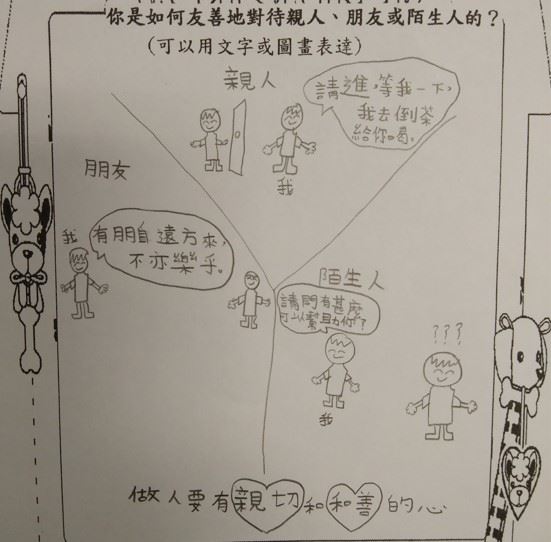 你是如何友善地對待親人、朋友或陌生人的?
(可以用文字或圖畫表達)
親人
請進,等我一下,
我去倒茶
給你喝。
我
朋友
我
有朋自遠方來,
不亦樂乎。
陌生人
請問有甚麼
可以幫助你?
我
???
做人要有親切和和善的心